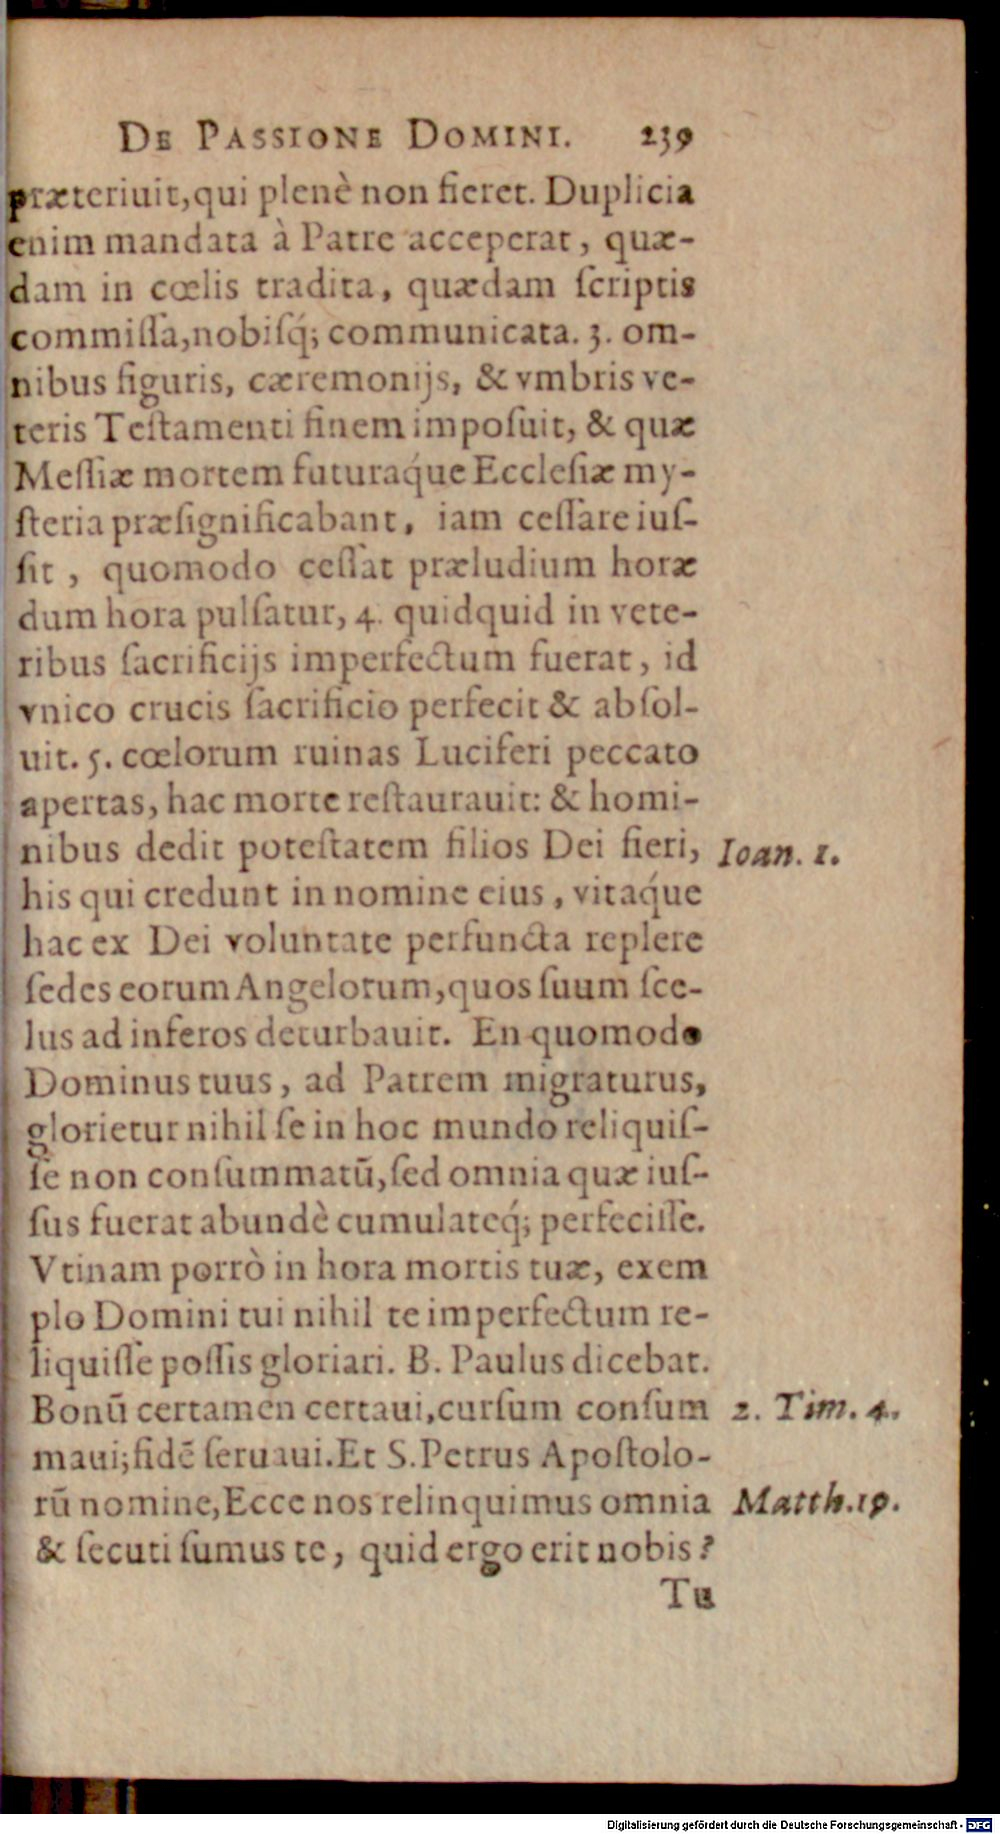 DE PASSIONE DOMINI. 239
præteriuit,qui plenè non fieret. Duplicia
enim mandata à Patre acceperat, quæ-
dam in cœlis tradita, quædam ſcriptis
commiſſa,nobiſq́; communicata. 3. om-
nibus figuris, cæremonijs, & vmbris ve-
teris Teſtamenti finem impoſuit, & quæ
Meſſiæ mortem futuraq́ue Eccleſiæ my-
ſteria præſignificabant, iam ceſſare iuſ-
ſit, quomodo ceſſat præludium horæ
dum hora pulſatur, 4. quidquid in vete-
ribus ſacrificijs imperfectum fuerat, id
vnico crucis ſacrificio perfecit & abſol-
uit. 5. cœlorum ruinas Luciferi peccato
apertas, hac morte reſtaurauit: & homi-
nibus dedit poteſtatem filios Dei fieri, Ioan. 1.
his qui credunt in nomine eius, vitaq́ue
hac ex Dei voluntate perfuncta replere
ſedes eorum Angelorum,quos ſuum ſce-
lus ad inferos deturbauit. En quomodo
Dominus tuus, ad Patrem migraturus,
glorietur nihil ſe in hoc mundo reliquiſ-
ſe non conſummatū,ſed omnia quæ iuſ-
ſus fuerat abundè cumulateq́; perfeciſſe.
Vtinam porrò in hora mortis tuæ, exem
plo Domini tui nihil te imperfectum re-
liquiſſe poſſis gloriari. B. Paulus dicebat.
Bonū certamen certaui,curſum conſum 2. Tim. 4.
maui;fidē ſeruaui.Et S.Petrus Apoſtolo-
rū nomine,Ecce nos relinquimus omnia Matth.19.
& ſecuti ſumus te, quid ergo erit nobis?
Tu
Digitalisierung gefördert durch die Deutsche Forschungsgemeinschaft - DFG